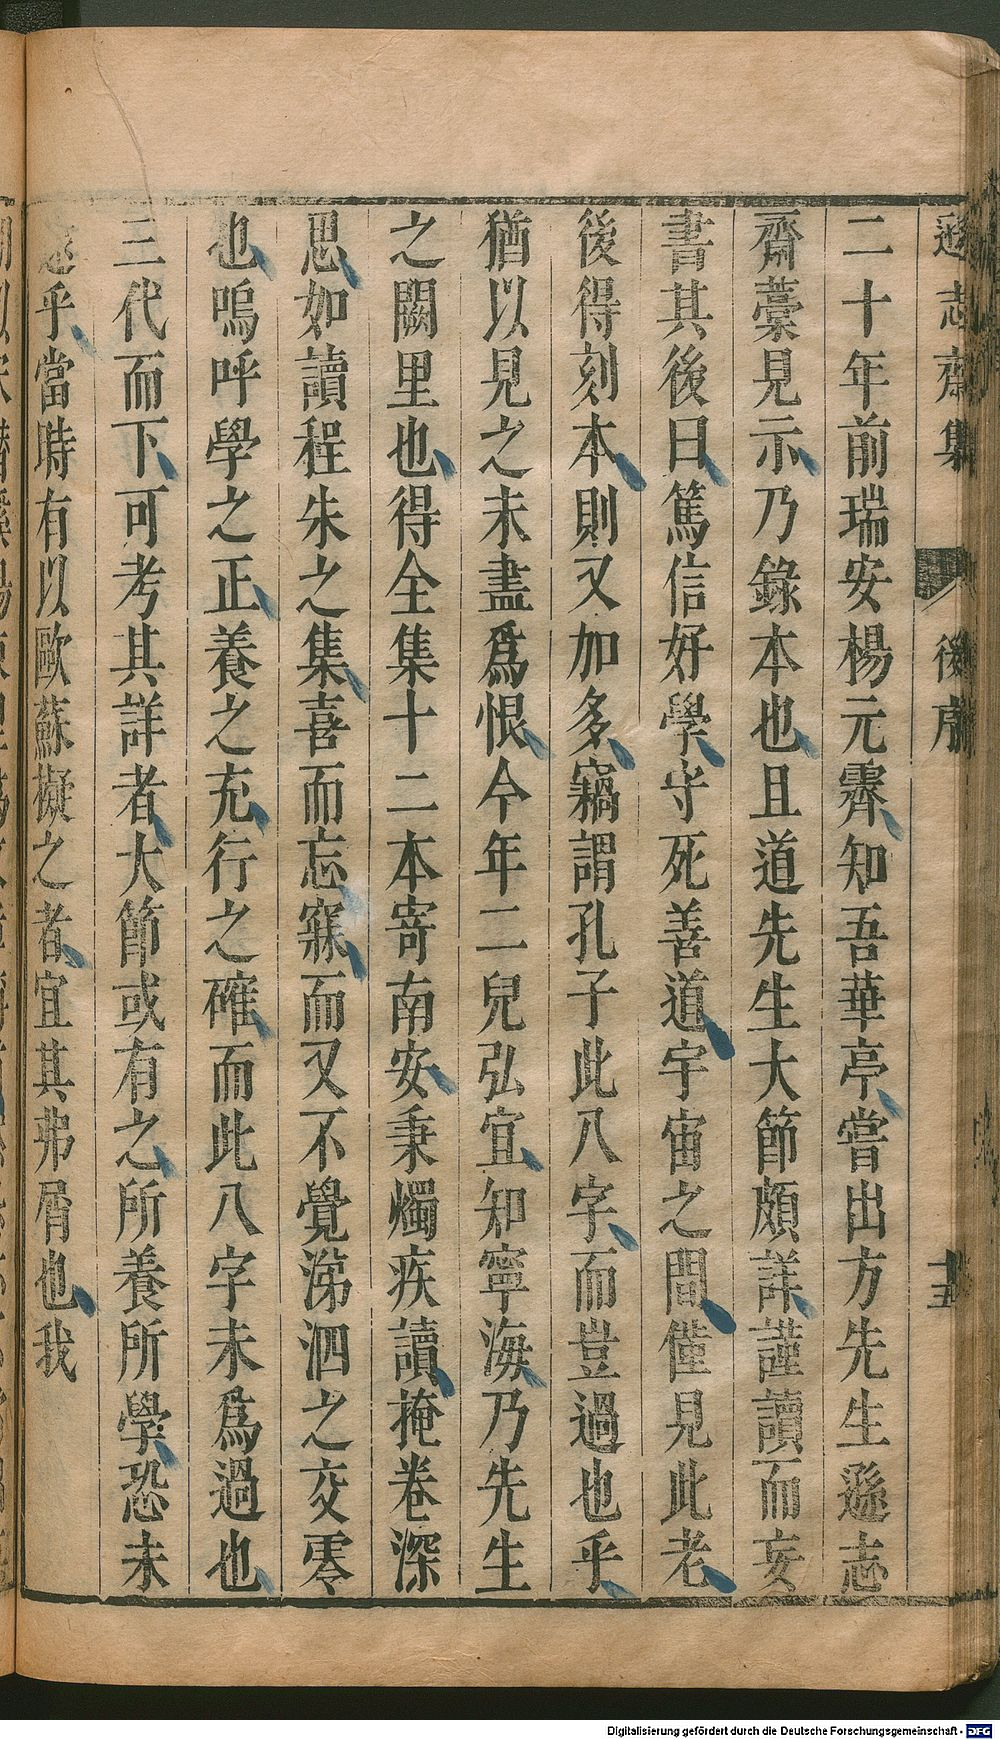 遜志齋集 後序 十五
二十年前瑞安楊元霽知吾華亭嘗出方先生遜志
齋藁見示乃錄本也且道先生大節頗詳謹讀而妄
書其後曰篤信好學守死善道宇宙之間僅見此老
後得刻本則又加多竊謂孔子此八字而豈過也乎
猶以見之未盡爲恨今年二兒弘宜知寧海乃先生
之闕里也得全集十二本寄南安秉燭疾讀掩卷深
思如讀程朱之集喜而忘寐而又不覺涕泗之交零
也嗚呼學之正養之充行之確而此八字未爲過也
三代而下可考其詳者大節或有之所養所學恐未
逮乎當時有以歐蘇擬之者宜其弗屑也我
Digitalisierung gefördert durch die Deutsche Forschungsgemeinschaft - DFG